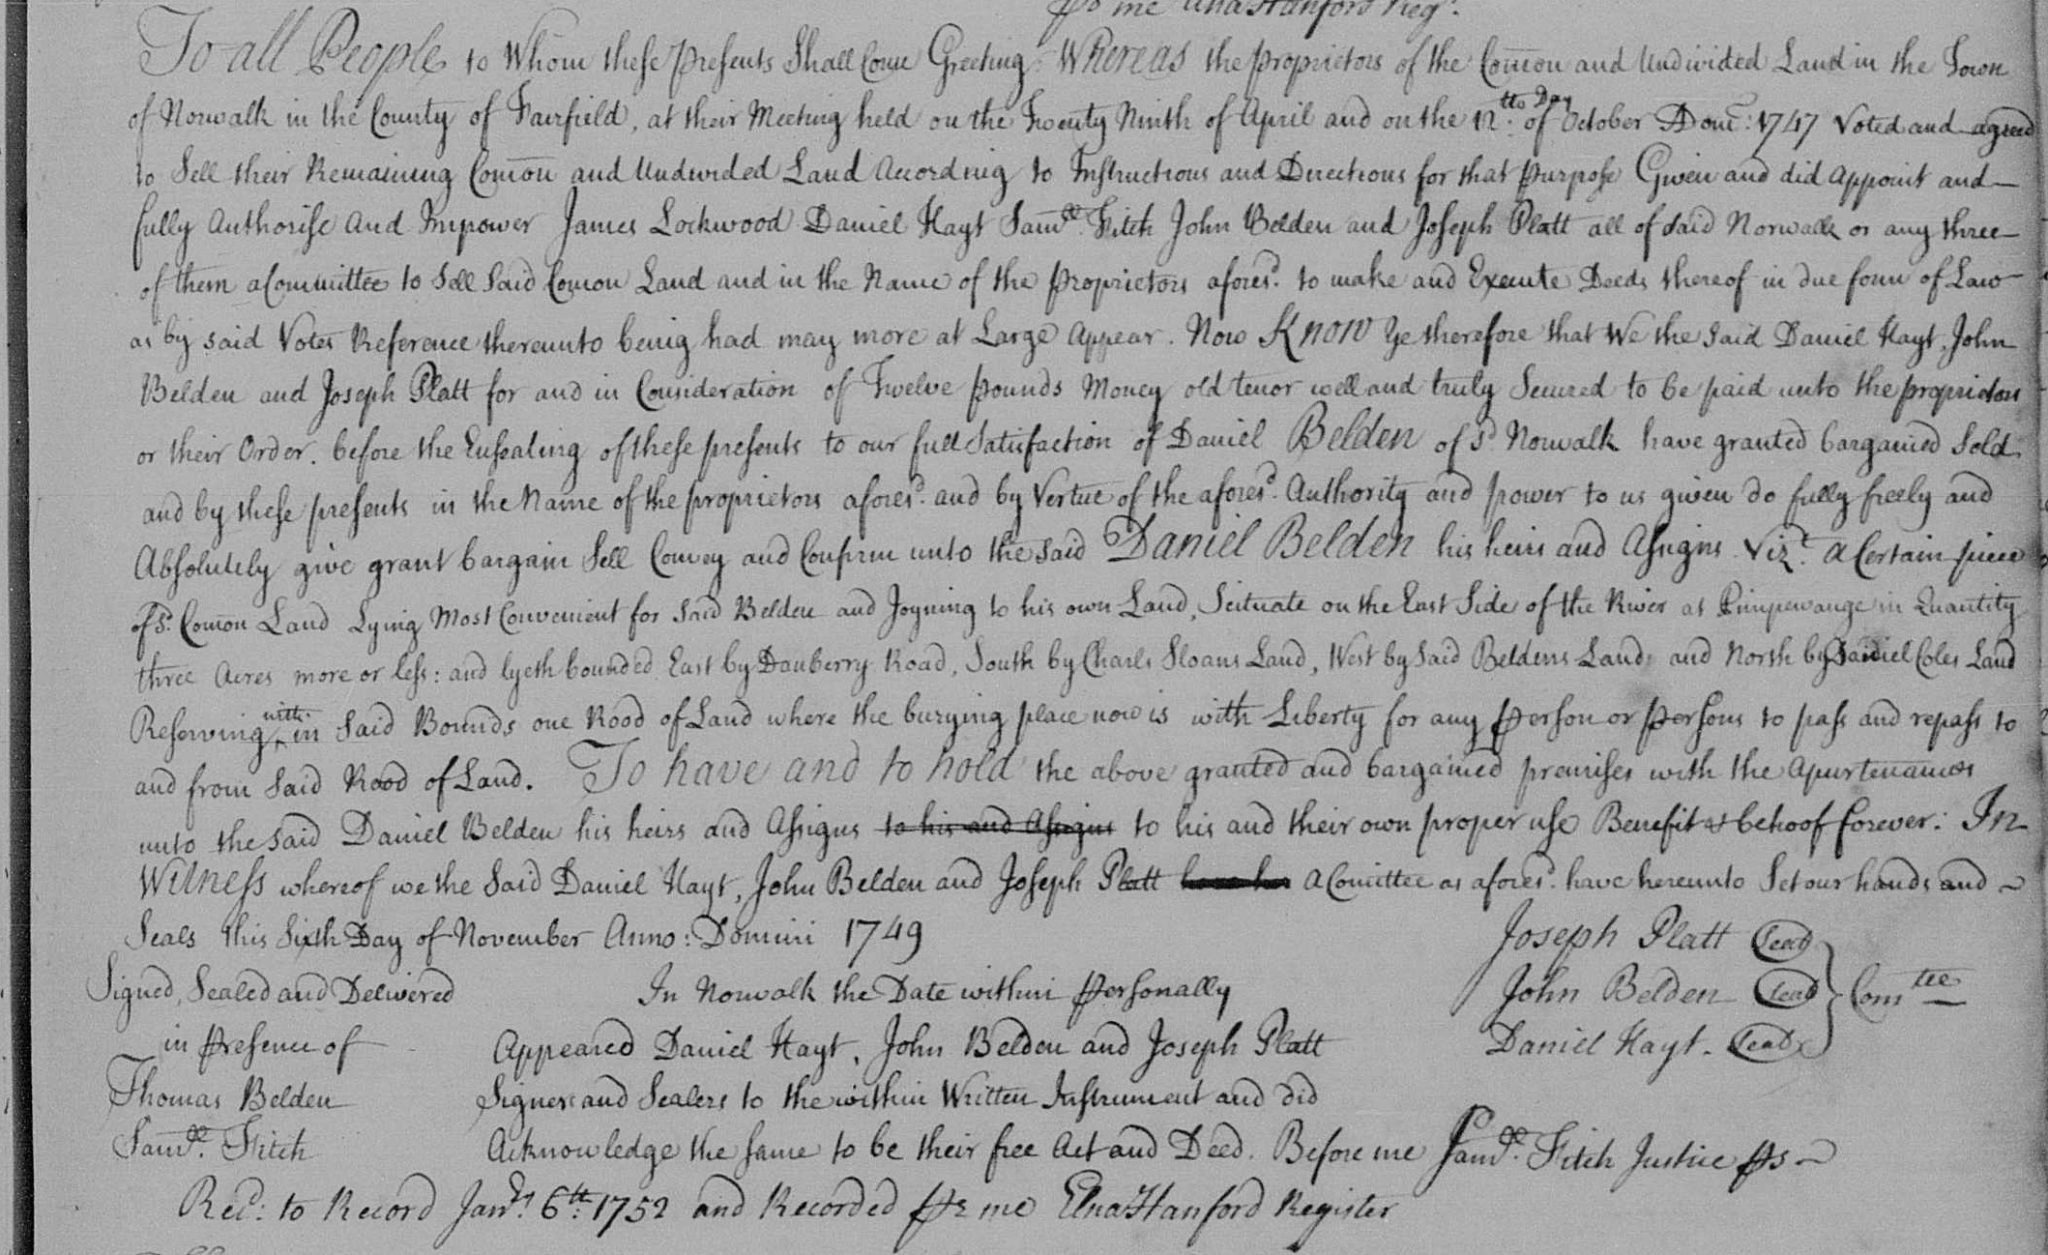 To all People to Whom these presents Shall Come Greeting: Whereas the proprietors of the Comon and Undivided Land in the Town
of Norwalk in the County of Fairfield, at their Meeting held on the Twenty Ninth of April and on the 12th Day of October Dom: 1747 Voted and agreed
to Sell their Remaining Comon and Undivided Land According to Instructions and Directions for that Purpose Given and did Appoint and
fully Authorise And Impower James Lockwood Daniel Hayt Samll. Fitch John Belden and Joseph Platt all of said Norwalk or any three
of them a Committee to Sell Said Comon Land and in the Name of the Proprietors aforesd. to make and Execute Deeds thereof in due form of Law
as by said Votes Reference thereunto being had may more at Large Appear. Now Know Ye therefore that We the Said Daniel Hayt, John
Belden and Joseph Platt for and in Consideration of Twelve pounds Money old tenor well and truly Secured to be paid unto the proprietors
or their Order. before the Ensealing of these presents to our full Satisfaction of Daniel Belden of sd. Norwalk have granted bargained Sold
and by these presents in the Name of the proprietors aforesd. and by Vertue of the aforesd. Authority and power to us given do fully freely and
Absolutely give grant bargain Sell Convey and Confirm unto the said Daniel Belden his heirs and Assigns Vizt. a Certain piece
of sd. Comon Land Lying Most Convenient for Said Belden and Joyning to his own Land, Scituate on the East Side of the River at Pimpewauge in Quantity
three Acres more or less: and lyeth bounded East by Danberry Road, South by Charls Sloans Land, West by Said Beldens Land and North by Daniel Coles Land
Reserving with in Said Bounds one Rood of Land where the burying place now is with Liberty for any Person or Persons to pass and repass to
and from Said Rood of Land. To have and to hold the above granted and bargained premises with the Apurtenances
unto the said Daniel Belden his heirs and Assigns to his and Assigns to his and their own proper use Benefit & behoof forever: In
Witness whereof we the Said Daniel Hayt, John Belden and Joseph Platt a Comittee as aforesd. have hereunto Set our hands and
Seals this Sixth Day of November Anno: Domini 1749
Joseph Platt Seal
Signed, Sealed and Delivered In Norwalk the Date within Personally John Belden Seal Comtee
in Presence of Appeared Daniel Hayt, John Belden and Joseph Platt Daniel Hayt. Seal
Thomas Belden Signers and Sealers to the within Written Instrument and did
Samll. Fitch Acknowledge the same to be their free Act and Deed. Before me Samll. Fitch Justice Ps
Recd: to Record Janry. 6th: 1752 and Recorded Pr me Elna Hanford Register